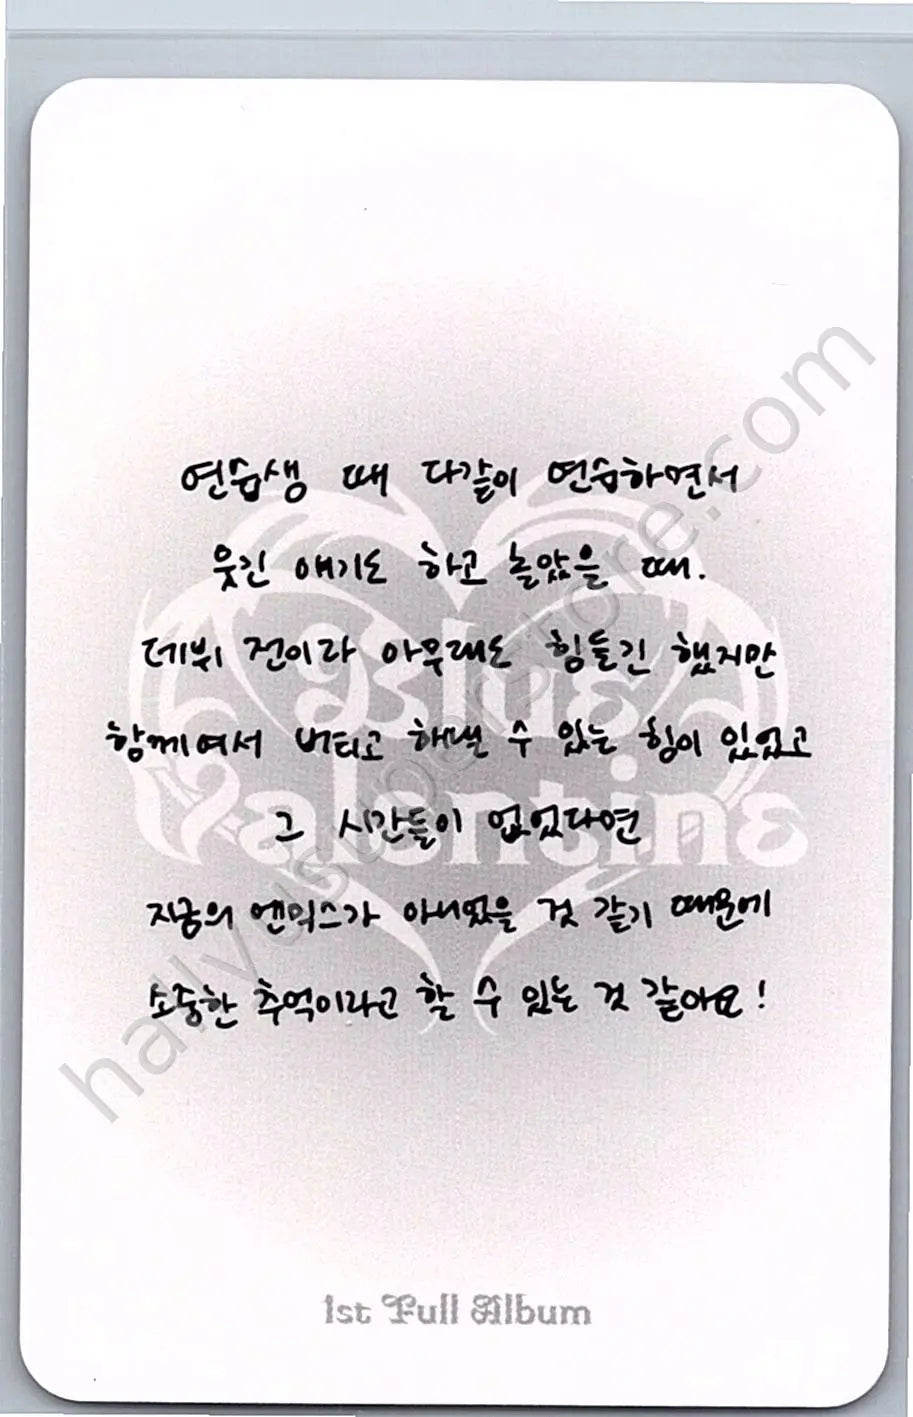 연습생 때 다같이 연습하면서
웃긴 얘기도 하고 놀았을 때.
데뷔 전이라 아무래도 힘들긴 했지만
함께여서 버티고 해낼 수 있는 힘이 있었고
그 시간들이 없었다면
지금의 엔믹스가 아니었을 것 같기 때문에
소중한 추억이라고 할 수 있는 것 같아요!
Blue
Valentine
1st Full Album
hallyusuperstore.com